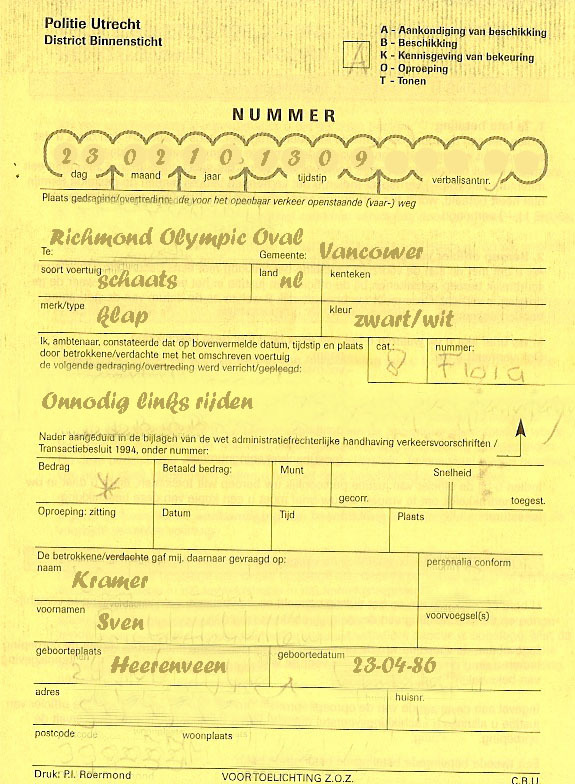 Politie Utrecht
District Binnensticht
A
A - Aankondiging van beschikking
B - Beschikking
K - Kennisgeving van bekeuring
O - Oproeping
T - Tonen
NUMMER
2 3 0 2 1 0 1 3 0 9
dag maand jaar tijdstip verbalisantnr.
Plaats gedraging/overtreding de voor het openbaar verkeer openstaande (vaar-) weg
Richmond Olympic Oval Vancouver
Te: Gemeente:
soort voertuig schaats land nl kenteken
merk/type klap kleur zwart/wit
Ik, ambtenaar, constateerde dat op bovenvermelde datum, tijdstip en plaats
door betrokkene/verdachte met het omschreven voertuig
de volgende gedraging/overtreding werd verricht/gepleegd:
cat.: nummer:
F101a
Onnodig links rijden
Nader aangeduid in de bijlagen van de wet administratiefrechterlijke handhaving verkeersvoorschriften /
Transactiebesluit 1994, onder nummer:
Bedrag Betaald bedrag: Munt Snelheid
*
gecorr. toegest.
Oproeping: zitting Datum Tijd Plaats
De betrokkene/verdachte gaf mij, daarnaar gevraagd op:
naam Kramer personalia conform
voornamen Sven voorvoegsel(s)
geboorteplaats Heerenveen geboortedatum 23-04-86
adres huisnr.
postcode woonplaats
Druk: P.I. Roermond VOOR TOELICHTING Z.O.Z. C.R.U.